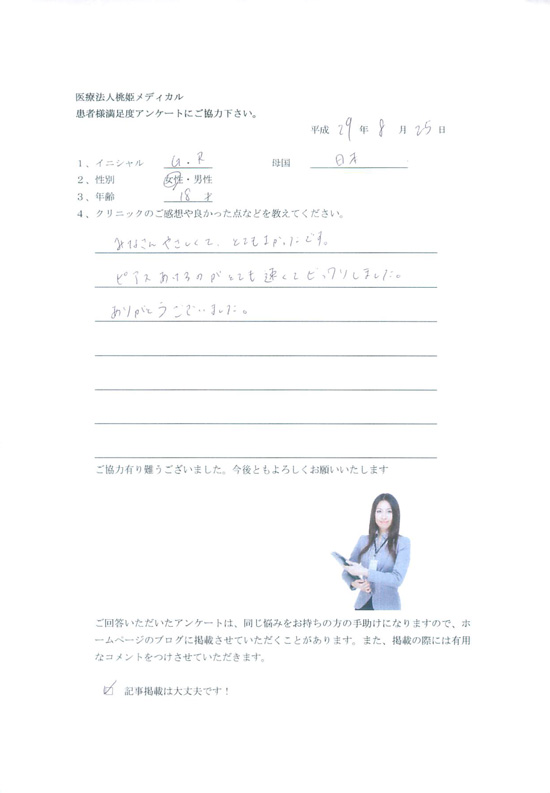 医療法人桃姫メディカル
患者様満足度アンケートにご協力下さい。
平成 29 年 8 月 25 日
1、イニシャル G・R 母国 日本
2、性別 女性・男性
3、年齢 18 才
4、クリニックのご感想や良かった点などを教えてください。
みなさんやさしくて、とてもよかったです。
ピアスあけるのがとても速くてビックリしました。
ありがとうございました。
ご協力有り難うございました。今後ともよろしくお願いいたします
ご回答いただいたアンケートは、同じ悩みをお持ちの方の手助けになりますので、ホ
ームページのブログに掲載させていただくことがあります。また、掲載の際には有用
なコメントをつけさせていただきます。
記事掲載は大丈夫です！